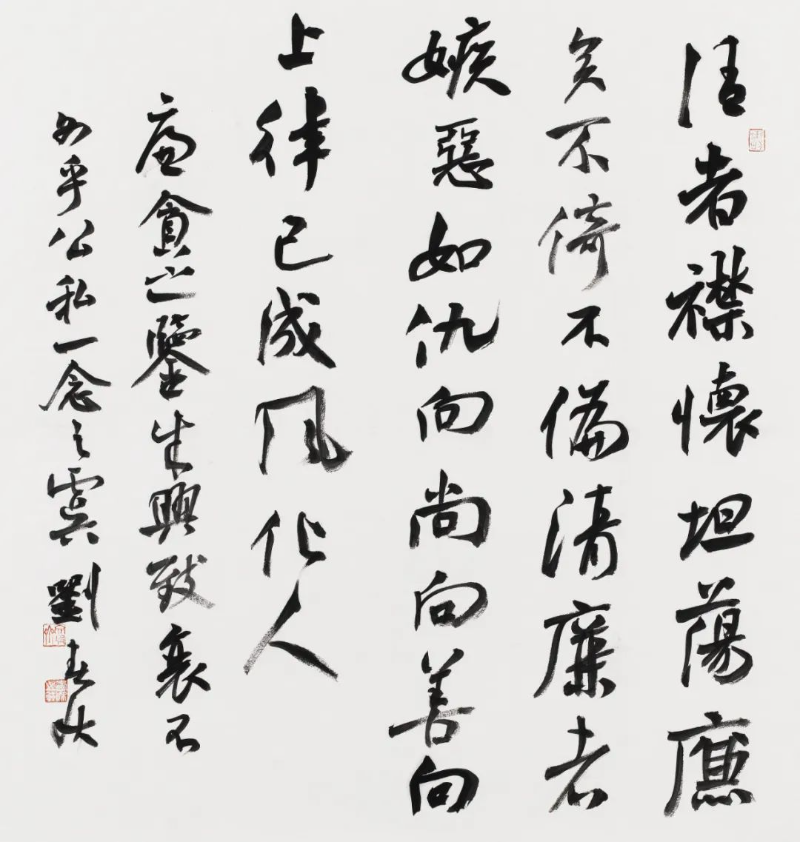 清者襟懷坦蕩廉
矣不倚不偏清廉者
嫉惡如仇向尚向善向
上律己成風化人
廉貪之鑒興致衰不
乎公私一念之虞劉春秋